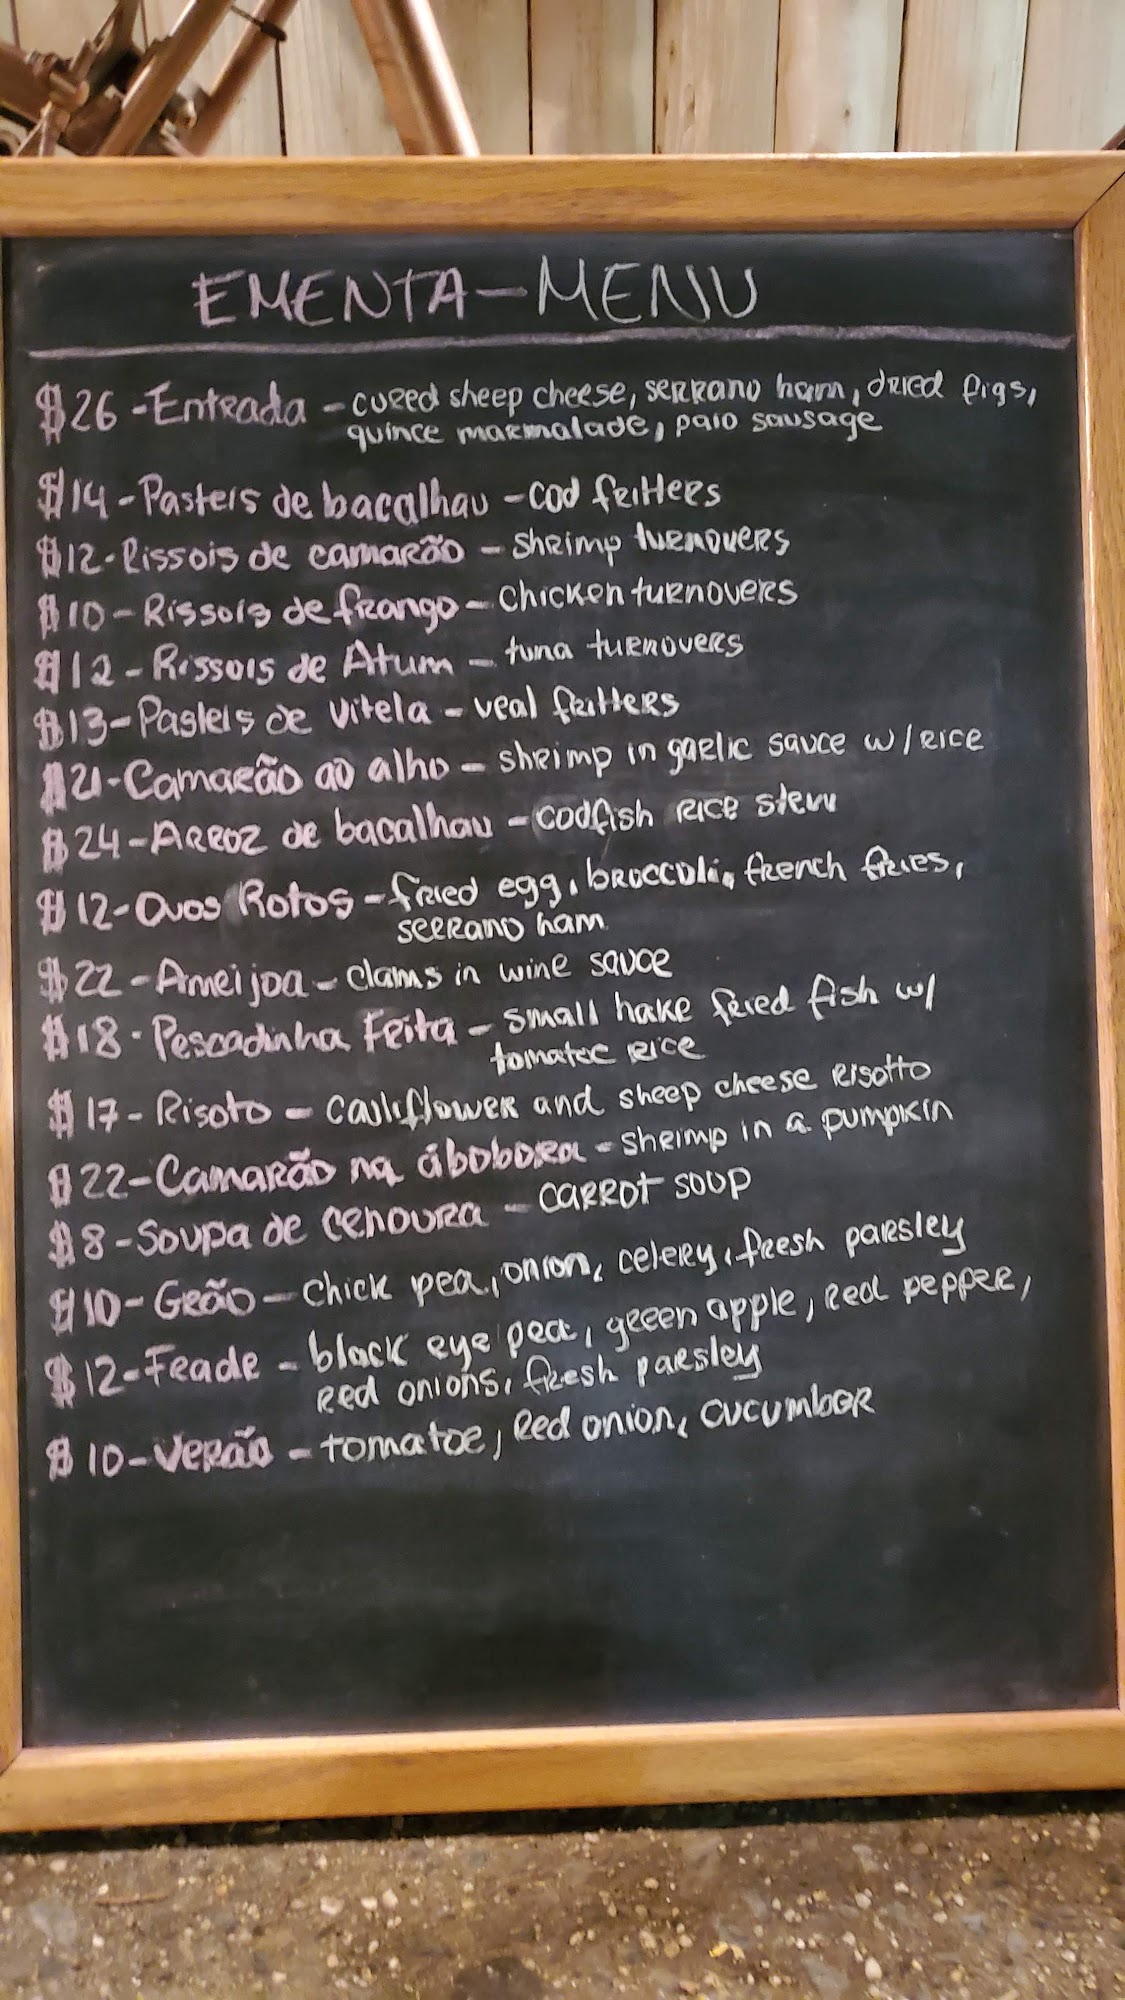 EMENTA - MENU
$26 - Entrada - cured sheep cheese, serrano ham, dried figs,
quince marmalade, paio sausage
$14 - Pasteis de bacalhau - cod fritters
$12 - Rissois de camarão - shrimp turnovers
$10 - Rissois de frango - chicken turnovers
$12 - Rissois de Atum - tuna turnovers
$13 - Pasteis de vitela - veal fritters
$21 - Camarão ao alho - shrimp in garlic sauce w/rice
$24 - Arroz de bacalhau - codfish rice stew
$12 - Ovos Rotos - fried egg, broccoli, french fries,
serrano ham
$22 - Ameijoa - clams in wine sauce
$18 - Pescadinha Frita - small hake fried fish w/
tomatoe rice
$17 - Risoto - cauliflower and sheep cheese risotto
$22 - Camarão na ábobora - shrimp in a pumpkin
$8 - Soupa de cenoura - carrot soup
$10 - Grão - chick pea, onion, celery, fresh parsley
$12 - Frade - black eye pea, green apple, red pepper,
red onions, fresh parsley
$10 - Verão - tomatoe, red onion, cucumber